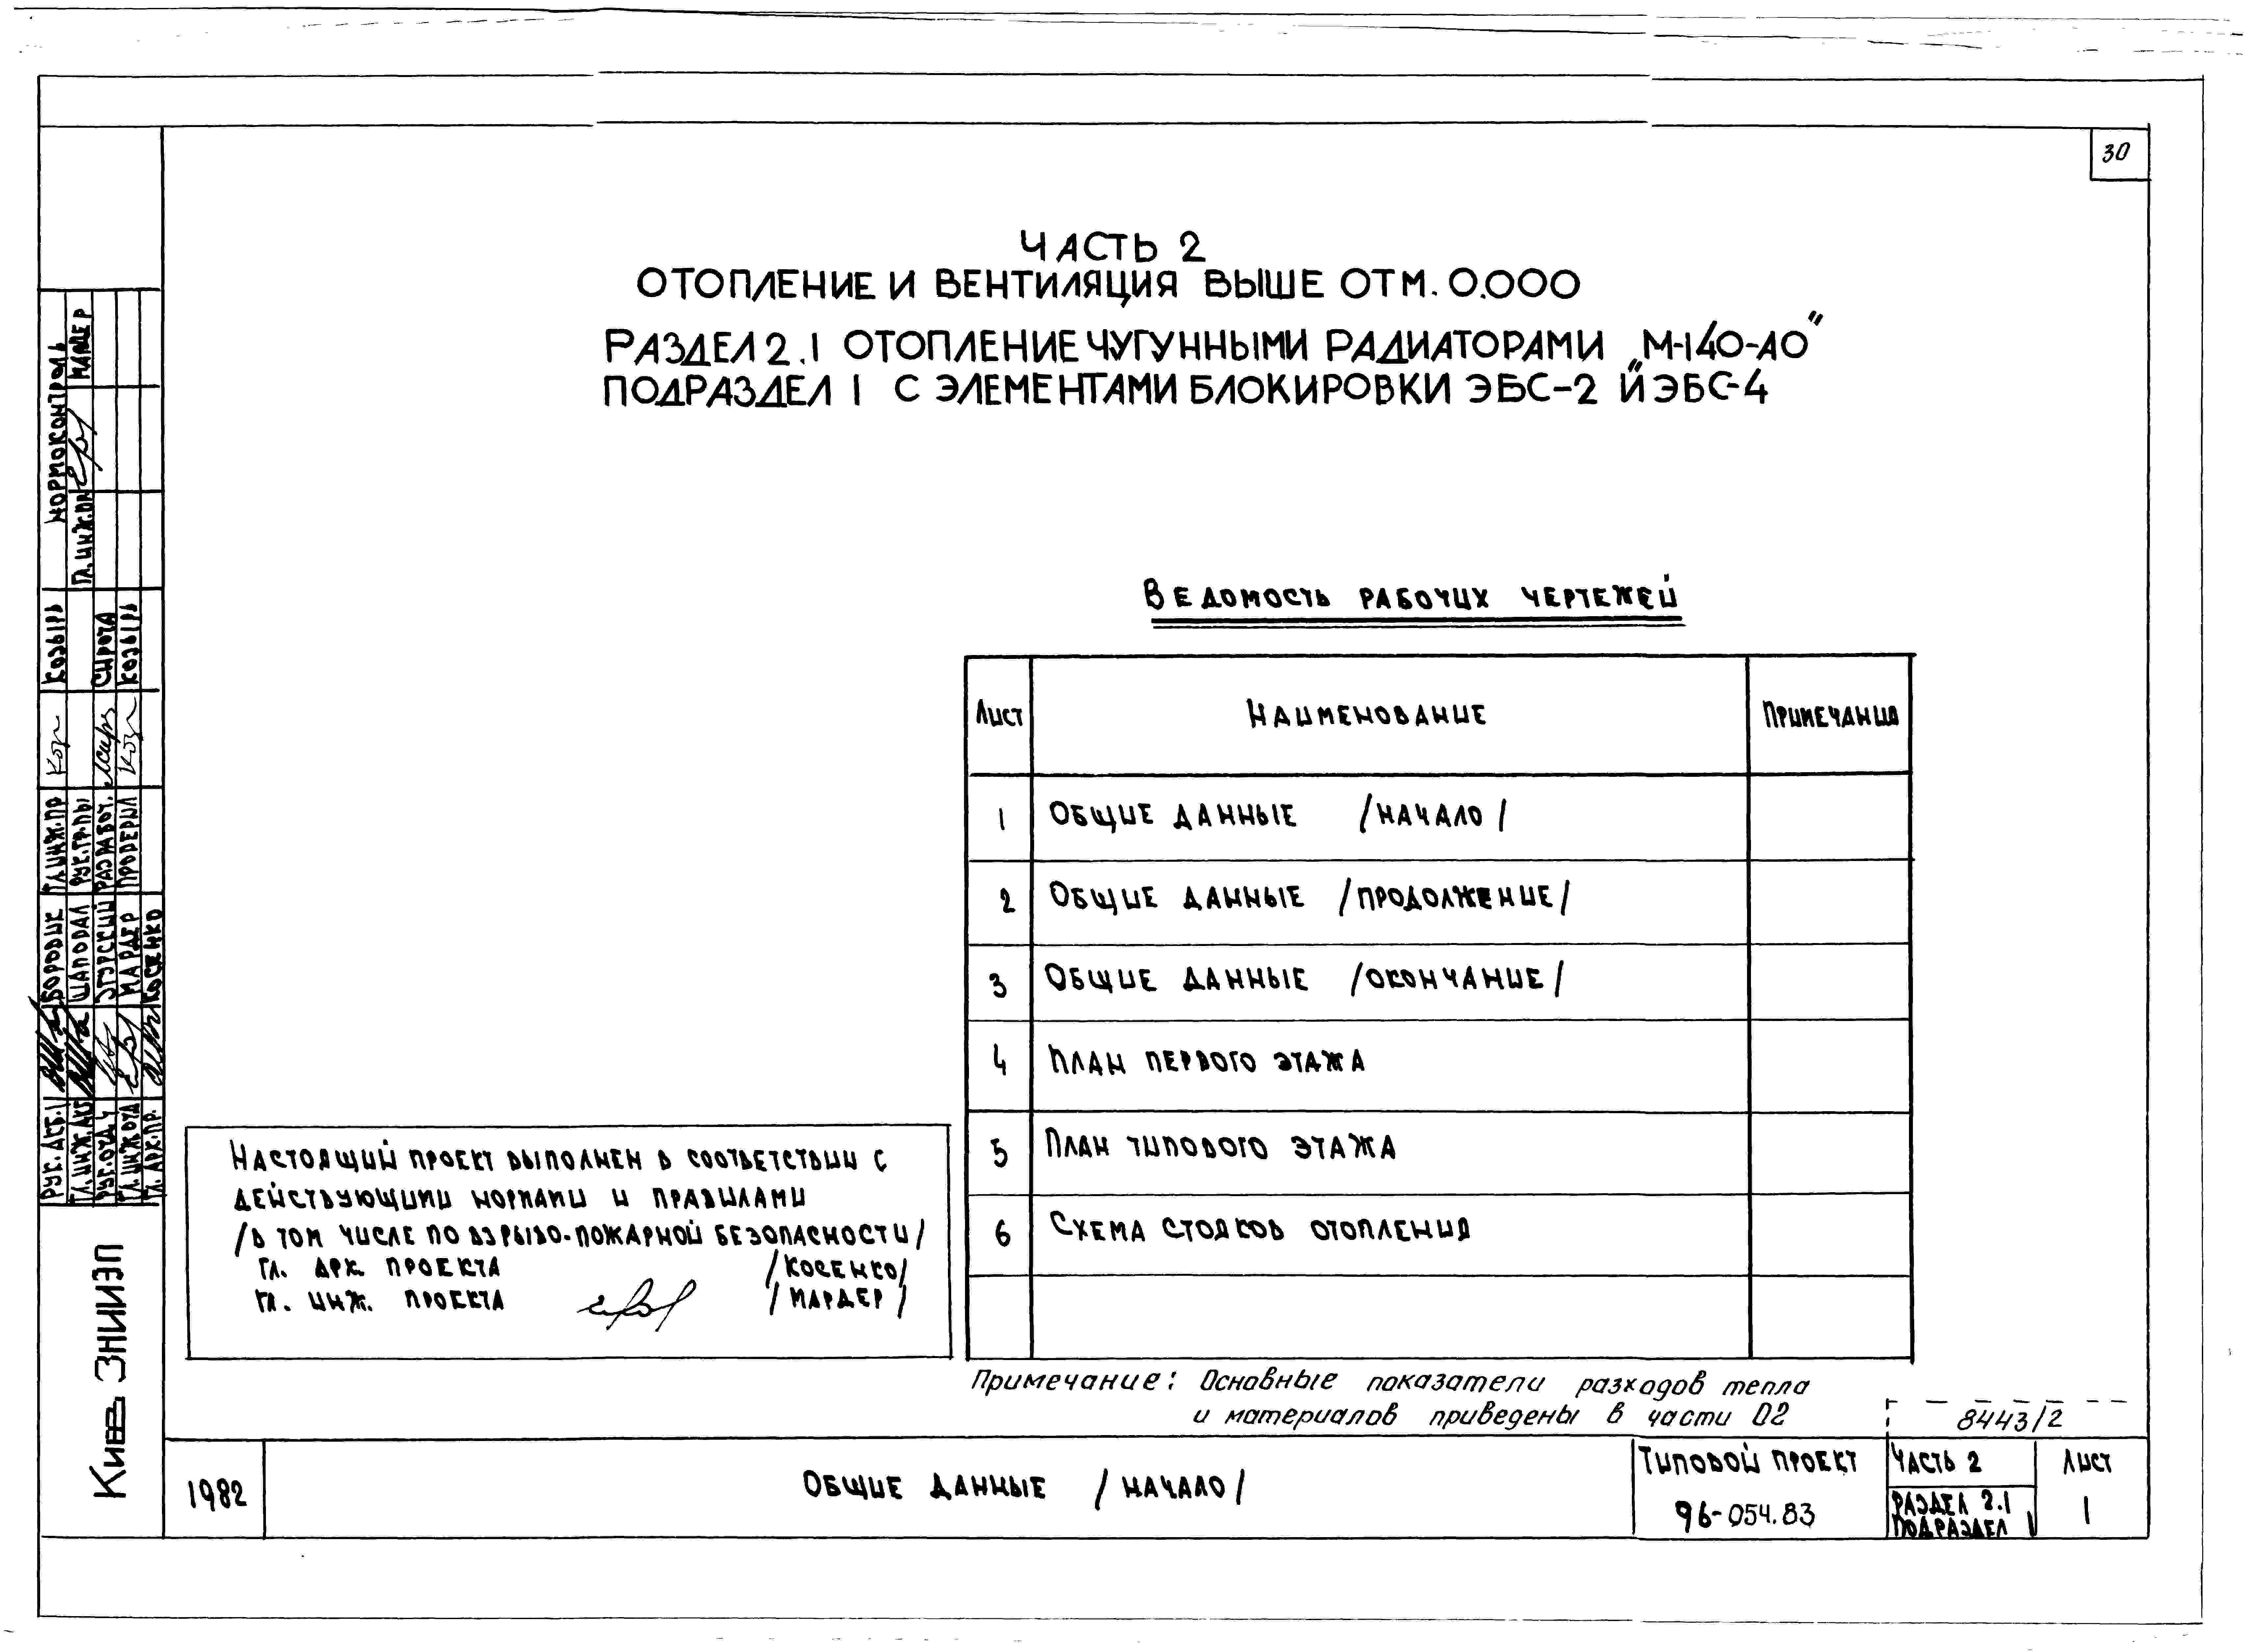 30
ЧАСТЬ 2
ОТОПЛЕНИЕ И ВЕНТИЛЯЦИЯ ВЫШЕ ОТМ. 0.000
РАЗДЕЛ 2.1 ОТОПЛЕНИЕ ЧУГУННЫМИ РАДИАТОРАМИ „М-140-АО"
ПОДРАЗДЕЛ 1 С ЭЛЕМЕНТАМИ БЛОКИРОВКИ ЭБС-2 И ЭБС-4
ВЕДОМОСТЬ РАБОЧИХ ЧЕРТЕЖЕЙ
ЛИСТ НАИМЕНОВАНИЕ ПРИМЕЧАНИЯ
1 ОБЩИЕ ДАННЫЕ /НАЧАЛО/
2 ОБЩИЕ ДАННЫЕ /ПРОДОЛЖЕНИЕ/
3 ОБЩИЕ ДАННЫЕ /ОКОНЧАНИЕ/
4 ПЛАН ПЕРВОГО ЭТАЖА
5 ПЛАН ТИПОВОГО ЭТАЖА
6 СХЕМА СТОЯКОВ ОТОПЛЕНИЯ
НАСТОЯЩИЙ ПРОЕКТ ВЫПОЛНЕН В СООТВЕТСТВИИ С
ДЕЙСТВУЮЩИМИ НОРМАМИ И ПРАВИЛАМИ
/В ТОМ ЧИСЛЕ ПО ВЗРЫВО-ПОЖАРНОЙ БЕЗОПАСНОСТИ/
ГЛ. АРХ. ПРОЕКТА /КОСЕНКО/
ГЛ. ИНЖ. ПРОЕКТА /МАРДЕР/
Примечание: Основные показатели разходов тепла
и материалов приведены в части 02
8443/2
1982
ОБЩИЕ ДАННЫЕ /НАЧАЛО/
ТИПОВОЙ ПРОЕКТ
96-054.83
ЧАСТЬ 2
РАЗДЕЛ 2.1
ПОДРАЗДЕЛ 1
ЛИСТ
1
НОРМОКОНТРОЛЬ
ГЛ. ИНЖ. ПР. МАРДЕР
ГЛ. ИНЖ. ПР КОЗЫРЬ
РУК. ГР-ПЫ
РАЗРАБОТ. СИРОТА
ПРОВЕРИЛ КОЗЫРЬ
РУК. АКБ. 1 БОРОВИК
ГЛ. ИНЖ. АКБ ШАПОВАЛ
РУК. ОТД 4 ЗГУРСКИЙ
ГЛ. ИНЖ ОТД МАРДЕР
ГЛ. АРХ. ПР. КОСЕНКО
КИЕВ ЗНИИЭП